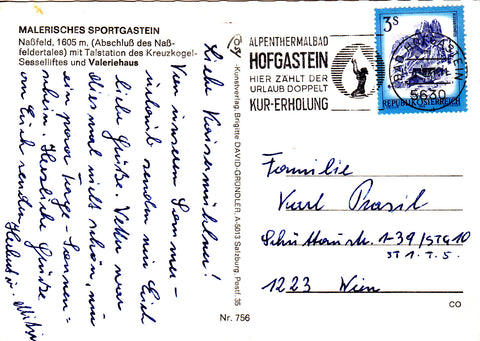 MALERISCHES SPORTGASTEIN
Naßfeld, 1605 m, (Abschluß des Naß-
feldertales) mit Talstation des Kreuzkogel-
Sesselliftes und Valeriehaus
Liebe Kaisermühlner!
Von unserem Sommer-
urlaub senden wir Euch
liebe Grüße. Wetter war
diesmal nicht schön, nur
ein paar Tage - Sonnen=
schein. Herzliche Grüße
an Euch senden
Herbert u. Mitzi
Kunstverlag Brigitte DAVID-GRÜNDLER, A-5013 Salzburg, Postf. 35
Nr. 756
ALPENTHERMALBAD
HOFGASTEIN
HIER ZÄHLT DER
URLAUB DOPPELT
KUR-ERHOLUNG
3S
REPUBLIK ÖSTERREICH
5630
Familie
Karl Prasil
Schüttaustr. 1-39/STG 10
ST 1. T. 5.
1223 Wien
CO